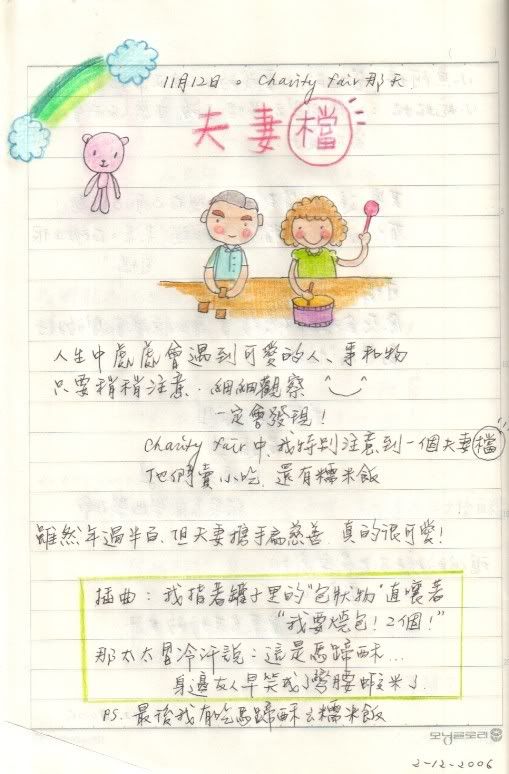 11月12日。Charity fair那天
夫妻檔
人生中處處會遇到可愛的人、事和物
只要稍稍注意.細細觀察
一定會發現!
Charity fair中,我特別注意到一個夫妻檔
他們賣小吃.還有糯米飯
雖然年過半百.但夫妻攜手為慈善.真的很可愛!
插曲:我指著罐子里的"包狀物"直嚷著
"我要燒包!2個!"
那太太冒冷汗說:這是馬蹄酥...
身邊友人早笑成了彎腰蝦米了
PS.最後我有吃馬蹄酥&糯米飯
모닝글로리
2-12-2006